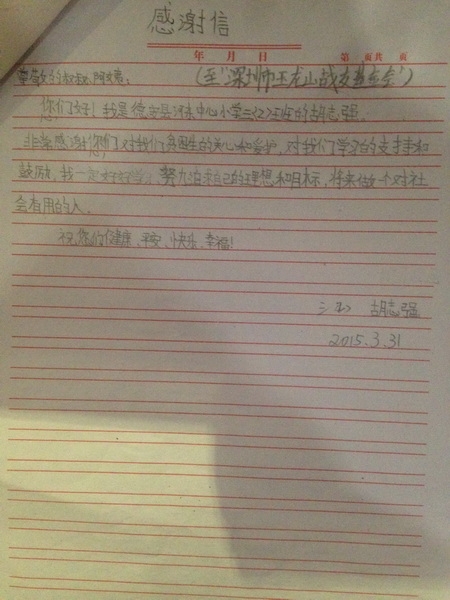 感谢信
年 月 日 第 页共 页
尊敬的叔叔、阿姨: (至"深圳市玉龙山战友基金会")
您们好!我是德安县河东中心小学三(2)班的胡志强。
非常感谢您们对我们贫困生的关心和爱护,对我们学习的支持和
鼓励,我一定好好学习,努力追求自己的理想和目标,将来做一个对社
会有用的人。
祝您们健康、平安、快乐、幸福!
三(2) 胡志强
2015.3.31